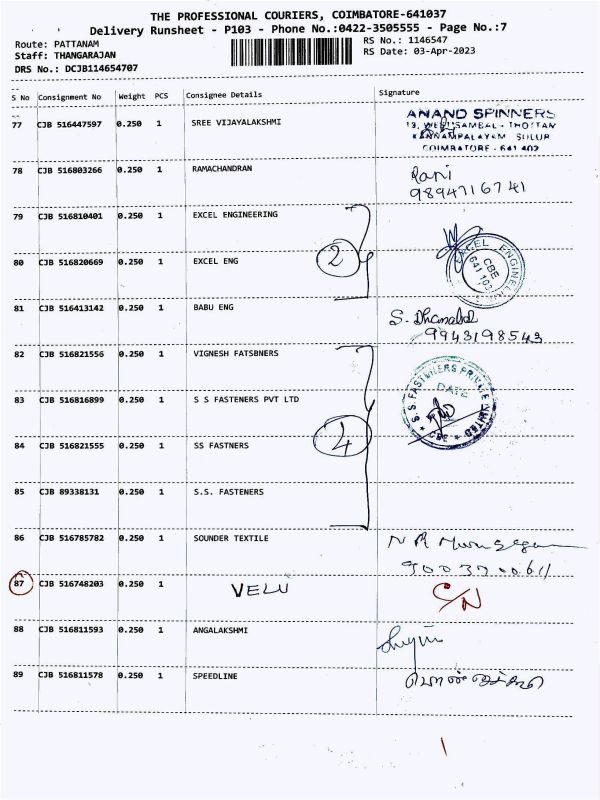 THE PROFESSIONAL COURIERS, COIMBATORE-641037
Delivery Runsheet - P103 - Phone No.:0422-3505555 - Page No.:7
Route: PATTANAM
RS No.: 1146547
Staff: THANGARAJAN
RS Date: 03-Apr-2023
DRS No.: DCJB114654707
S No Consignment No Weight PCS Consignee Details Signature
77 CJB 516447597 0.250 1 SREE VIJAYALAKSHMI
ANAND SPINNERS
KANNAMPALAYAM SULUR
COIMBATORE - 641 402
78 CJB 516803266 0.250 1 RAMACHANDRAN
Rani
9894716741
79 CJB 516810401 0.250 1 EXCEL ENGINEERING
2
80 CJB 516820669 0.250 1 EXCEL ENG
EXCEL ENGINEE
CBE
641 103
81 CJB 516413142 0.250 1 BABU ENG
S. Dhanabal
9943198543
82 CJB 516821556 0.250 1 VIGNESH FATSBNERS
83 CJB 516816899 0.250 1 S S FASTENERS PVT LTD
S. S. FASTENERS PRIVATE LIMITED
DATE
* CBE *
4
84 CJB 516821555 0.250 1 SS FASTNERS
85 CJB 89338131 0.250 1 S.S. FASTENERS
86 CJB 516785782 0.250 1 SOUNDER TEXTILE
N R
87 CJB 516748203 0.250 1 VELU
C/N
88 CJB 516811593 0.250 1 ANGALAKSHMI
89 CJB 516811578 0.250 1 SPEEDLINE